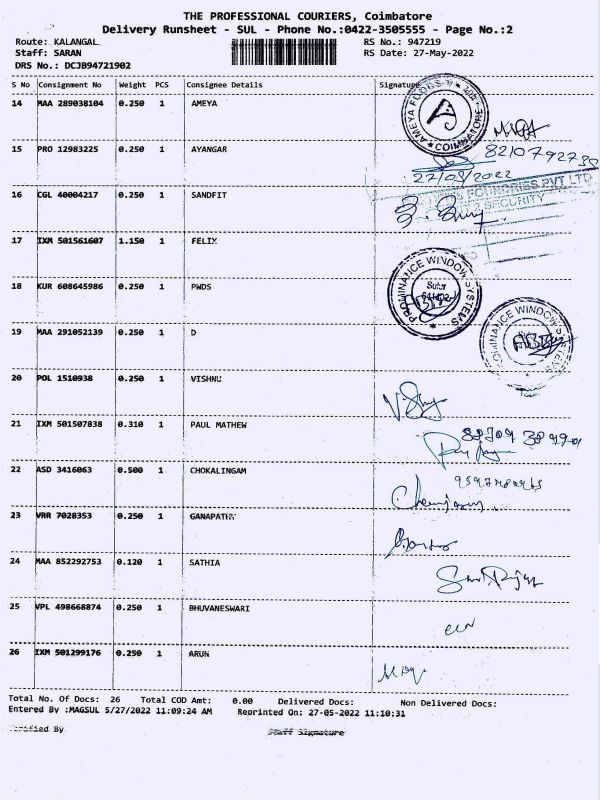 THE PROFESSIONAL COURIERS, Coimbatore
Delivery Runsheet - SUL - Phone No.:0422-3505555 - Page No.:2
Route: KALANGAL RS No.: 947219
Staff: SARAN RS Date: 27-May-2022
DRS No.: DCJB94721902
S No Consignment No Weight PCS Consignee Details Signature
14 MAA 289038104 0.250 1 AMEYA
AMEYA FOODS COIMBATORE
15 PRO 12983225 0.250 1 AYANGAR
27/05/2022
PVT LTD
SECURITY
16 CGL 40004217 0.250 1 SANDFIT
17 IXM 501561607 1.150 1 FELIX
18 KUR 608645986 0.250 1 PWDS
PROMINANCE WINDOW SYSTEMS
Sulur
19 MAA 291052139 0.250 1 D
PROMINANCE WINDOW SYSTEMS
20 POL 1510938 0.250 1 VISHNU
21 IXM 501507838 0.310 1 PAUL MATHEW
22 ASD 3416063 0.500 1 CHOKALINGAM
23 VRR 7028353 0.250 1 GANAPATHY
24 MAA 852292753 0.120 1 SATHIA
25 VPL 498668874 0.250 1 BHUVANESWARI
26 IXM 501299176 0.250 1 ARUN
Total No. Of Docs: 26 Total COD Amt: 0.00 Delivered Docs: Non Delivered Docs:
Entered By :MAGSUL 5/27/2022 11:09:24 AM Reprinted On: 27-05-2022 11:10:31
Verified By Staff Signature